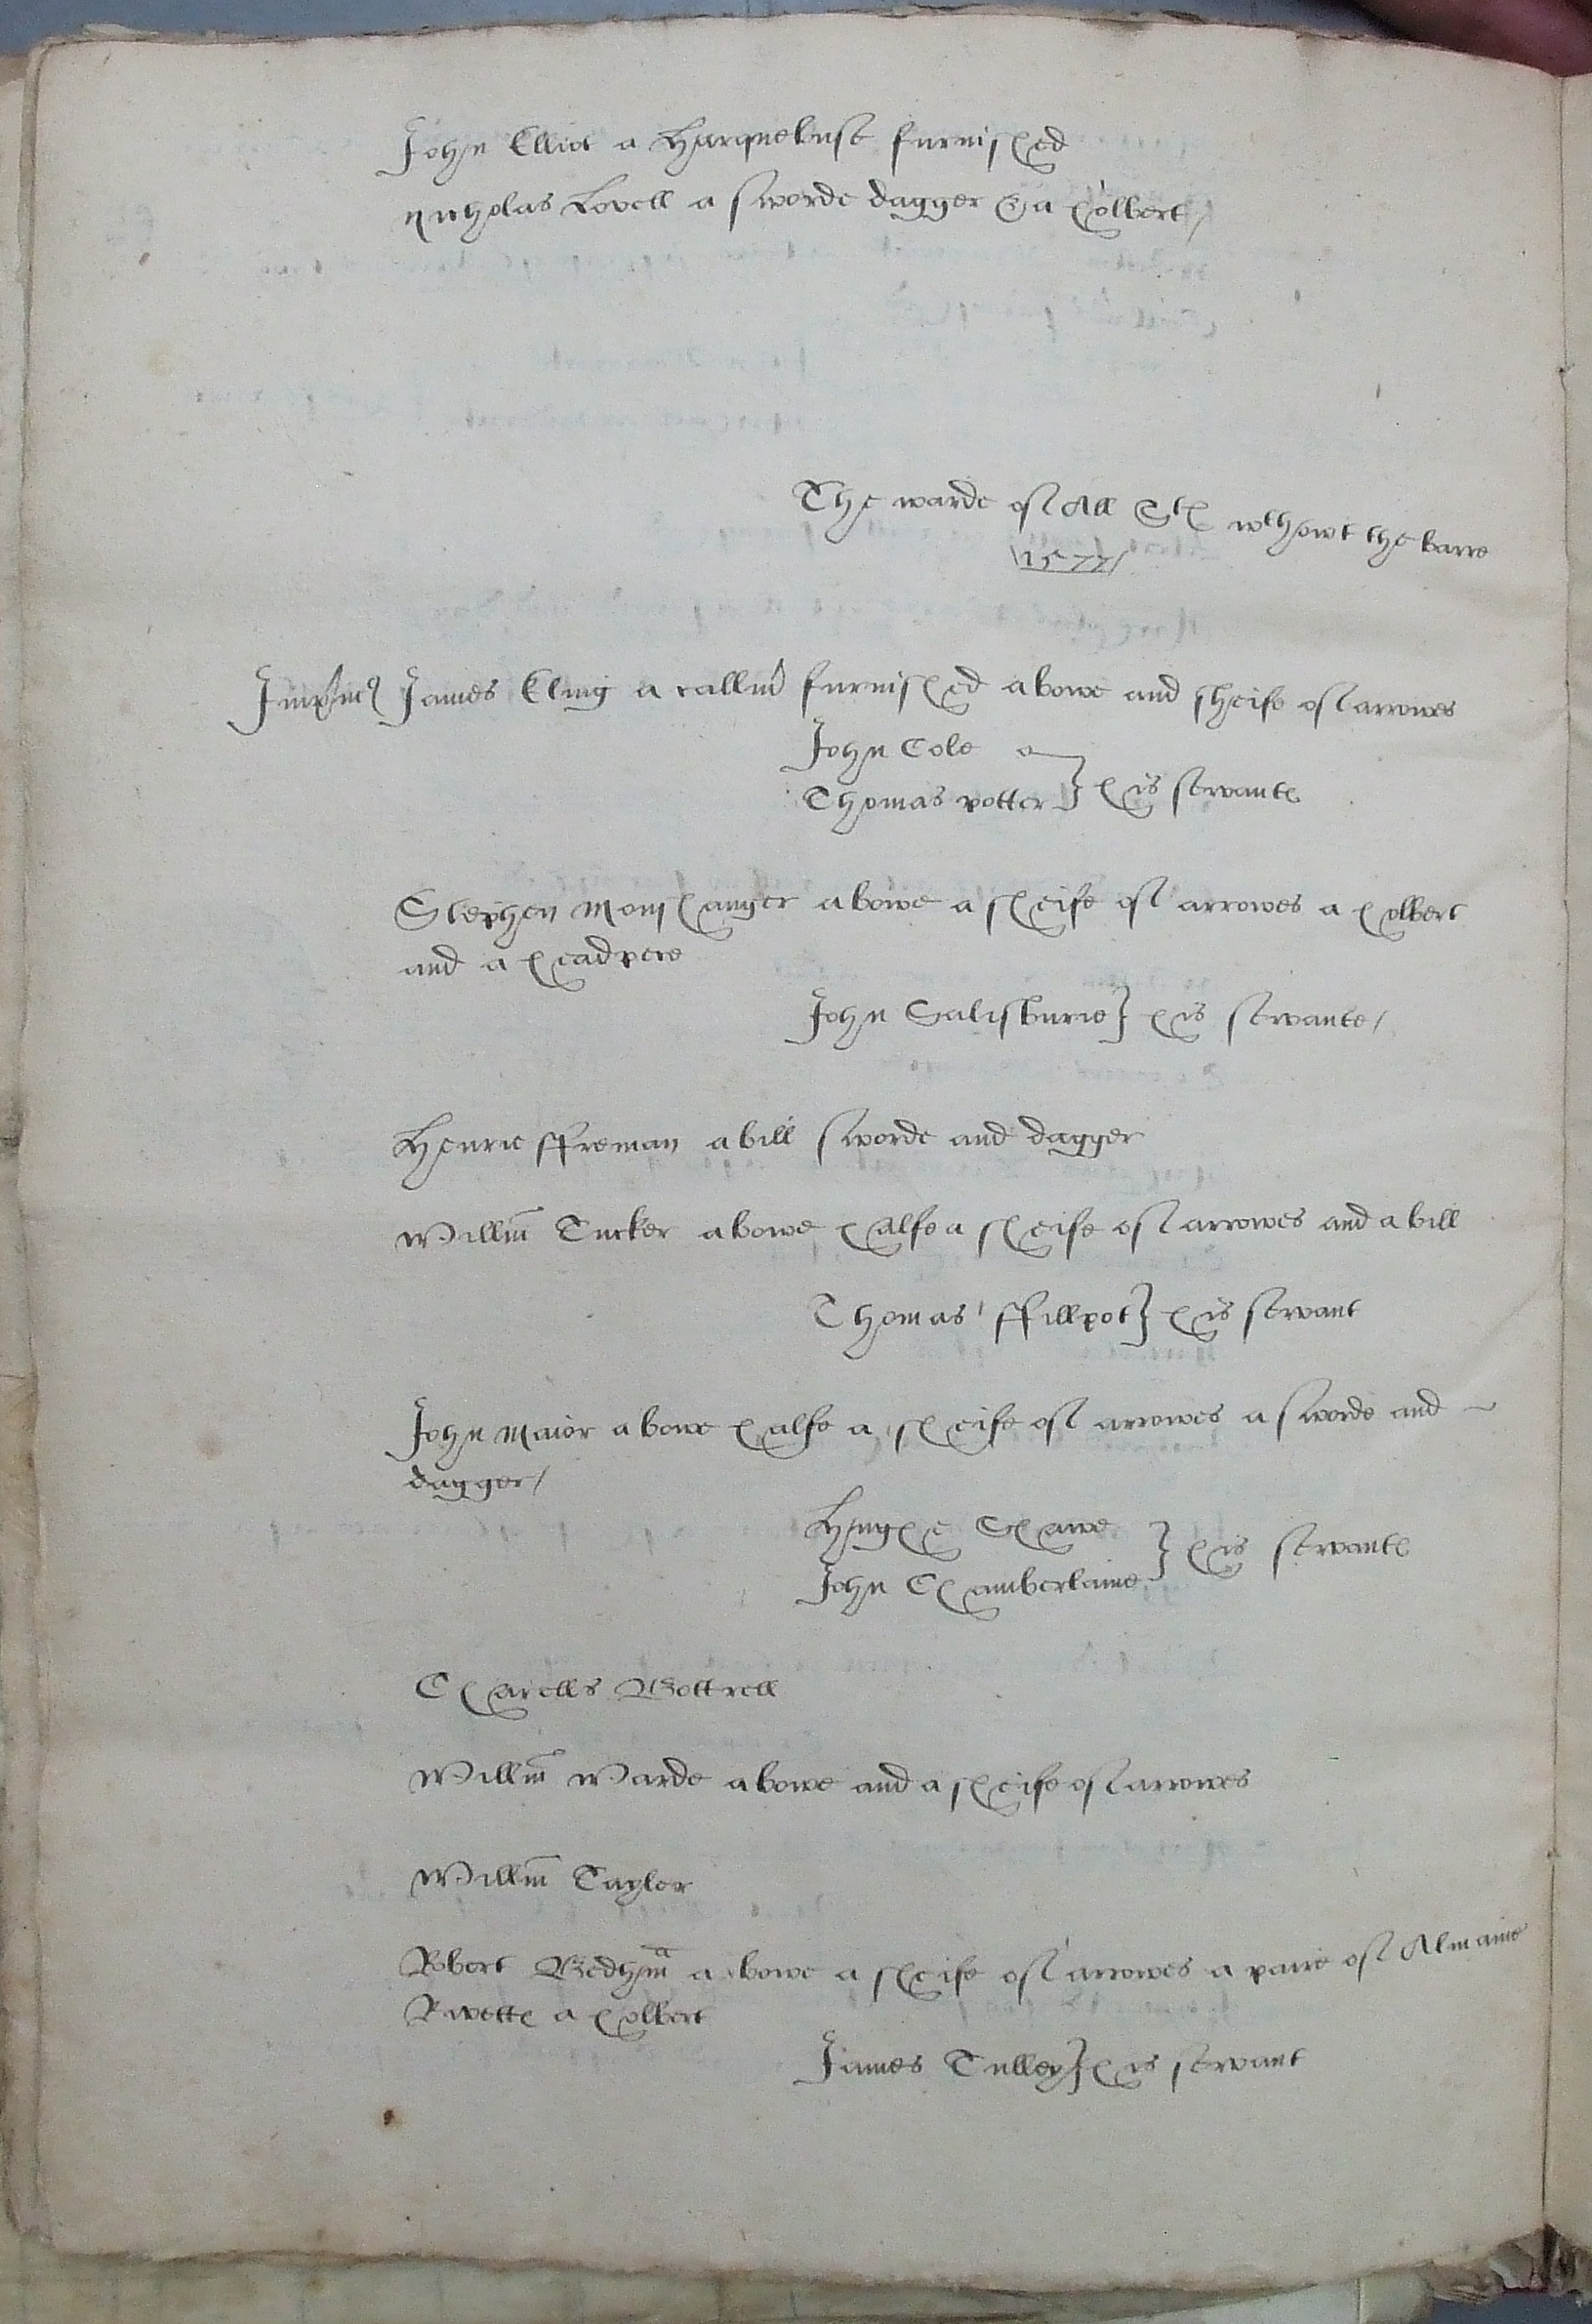 John Elliot a Harquebust furnished
Nicholas Lovell a sworde dagger & a holbert/
The warde of All Stes wthowt the barre
\1577/
Inprimis James Eling a callivr furnished a bowe and sheife of arrowes
John Cole a
Thomas potter } his servantes
Stephen Monshanger a bowe a sheife of arrowes a holbert
and a headpece
John Salisburie } his servante/
Henrie ffreman a bill sworde and dagger
Willm Tucker a bowe halfe a sheife of arrowes and a bill
Thomas ffillpot } his servant
John Maior a bowe halfe a sheife of arrowes a sworde and
dagger/
Hughe Shawe
John Chamberlaine } his servantes
Charells Bottrell
Willm Warde a bowe and a sheife of arrowes
Willm Taylor
Robert Bedhm a bowe a sheife of arrowes a paire of Almaine
Rivettes a holbert
James Tulley } his servant